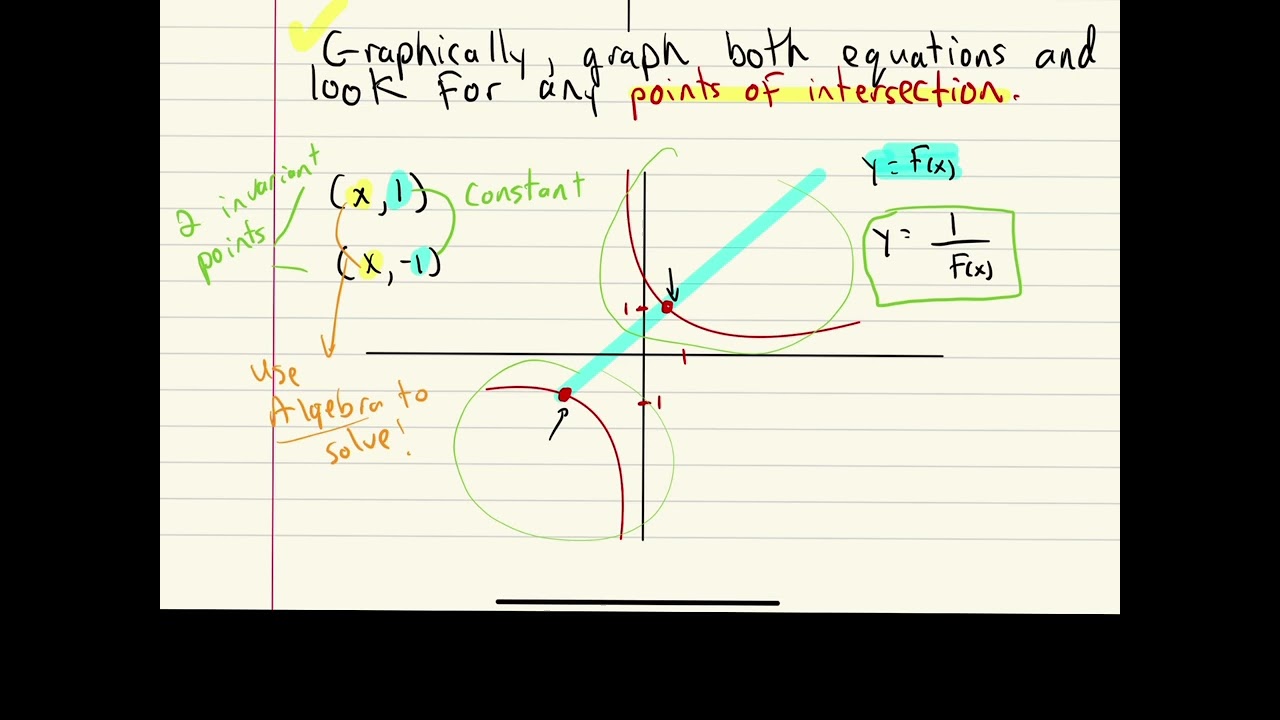 Graphically, graph both equations and
look for any points of intersection.
2 invariant
points
(x, 1)
(x, -1)
constant
use
Algebra to
solve!
y = F(x)
y = 1/F(x)
1
1
-1